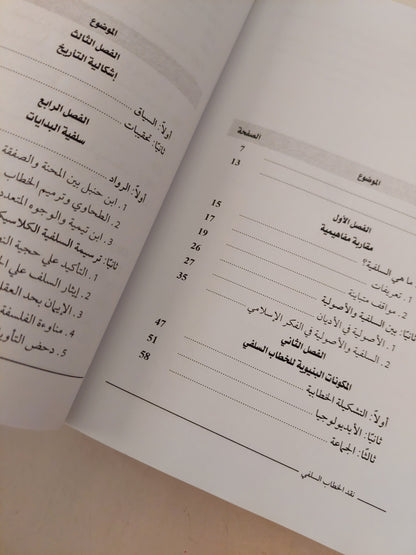 الموضوع
الصفحة
7
13
الفصل الأول
15
مقاربة مفاهيمية
17
ما هي السلفية؟
19
1. تعريفات
26
2. مواقف متباينة
27
ثانيًا: بين السلفية والأصولية
35
1. الأصولية في الأديان
2. السلفية والأصولية في الفكر الإسلامي
الفصل الثاني
47
المكونات البنيوية للخطاب السلفي
51
أولًا: التشكيلة الخطابية
58
ثانيًا: الأيديولوجيا
ثالثًا: الجماعة
نقد الخطاب السلفي
الموضوع
الفصل الثالث
إشكالية التأريخ
أولًا: السياق
ثانيًا: تحقيبات
الفصل الرابع
سلفية البدايات
أولًا: الرواد
1. ابن حنبل بين المحنة والصفقة
2. الطحاوي وترميم الخطاب
3. ابن تيمية والوجوه المتعدد
ثانيًا: ترسيمة السلفية الكلاسيك
1. التأكيد على حجية
2. إيثار السلف على
3. الإيمان يحد العقل
4. مناوءة الفلسفة
5. دحض التأوي